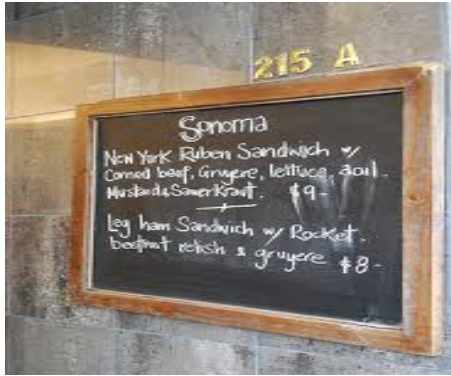 215 A
Sonoma
New York Ruben Sandwich w/
Corned beef, Gruyere, lettuce, aoil.
Mustard & Sauerkraut. $9-
Leg ham Sandwich w/ Rocket.
beetroot relish & gruyere $8-